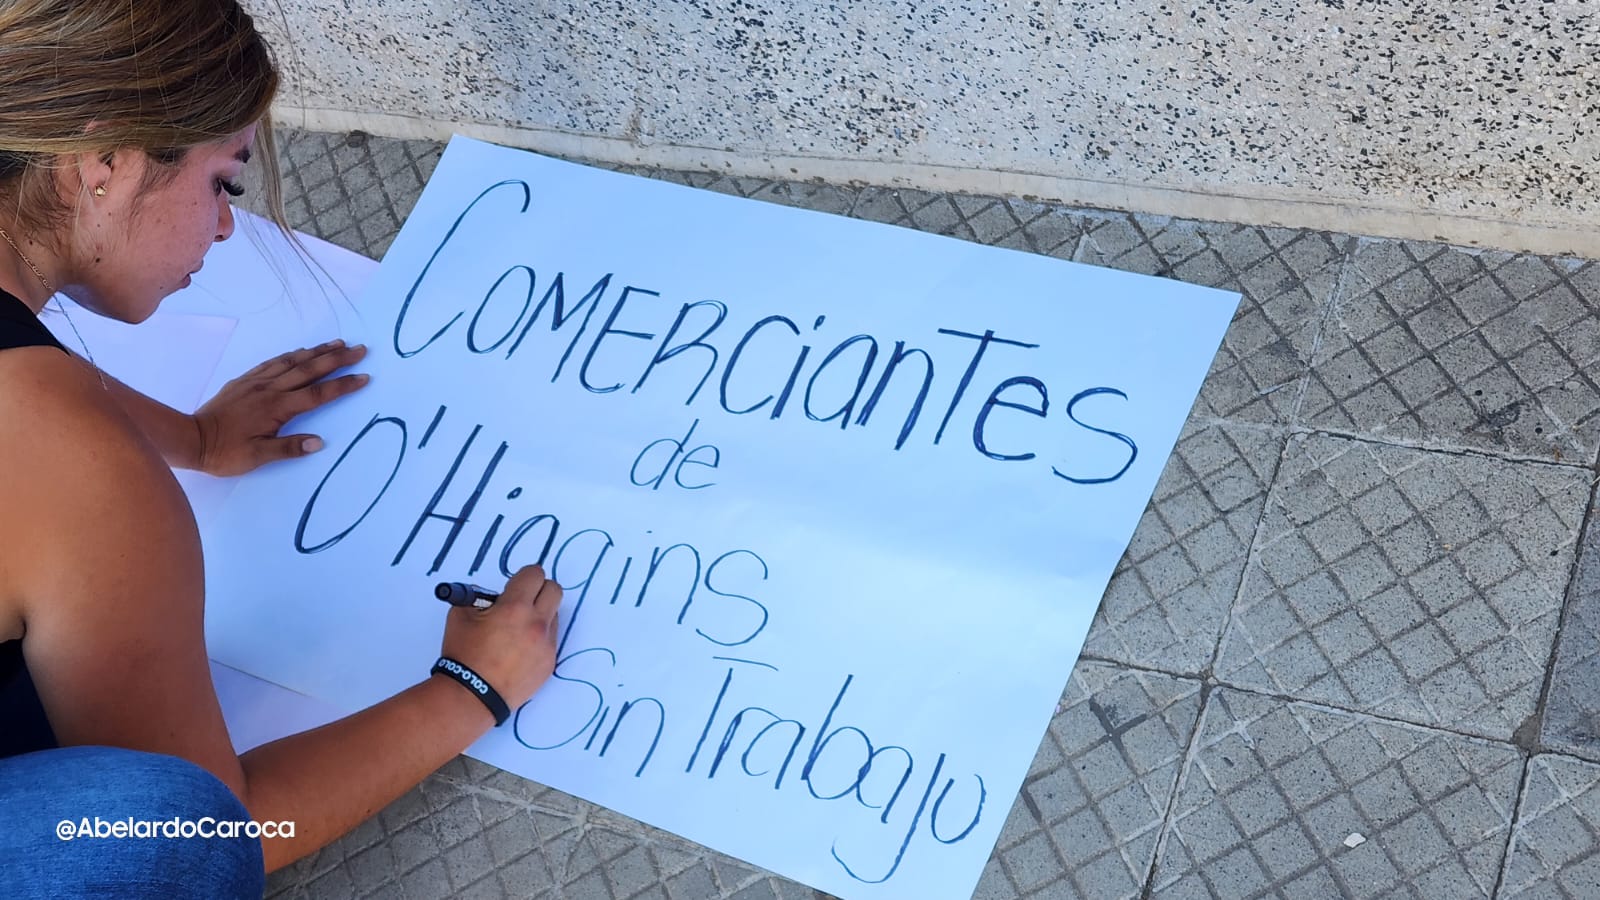 COMERCianTes
de
O'Higgins
Sin Trabajo
COLO-COLO
@AbelardoCaroca